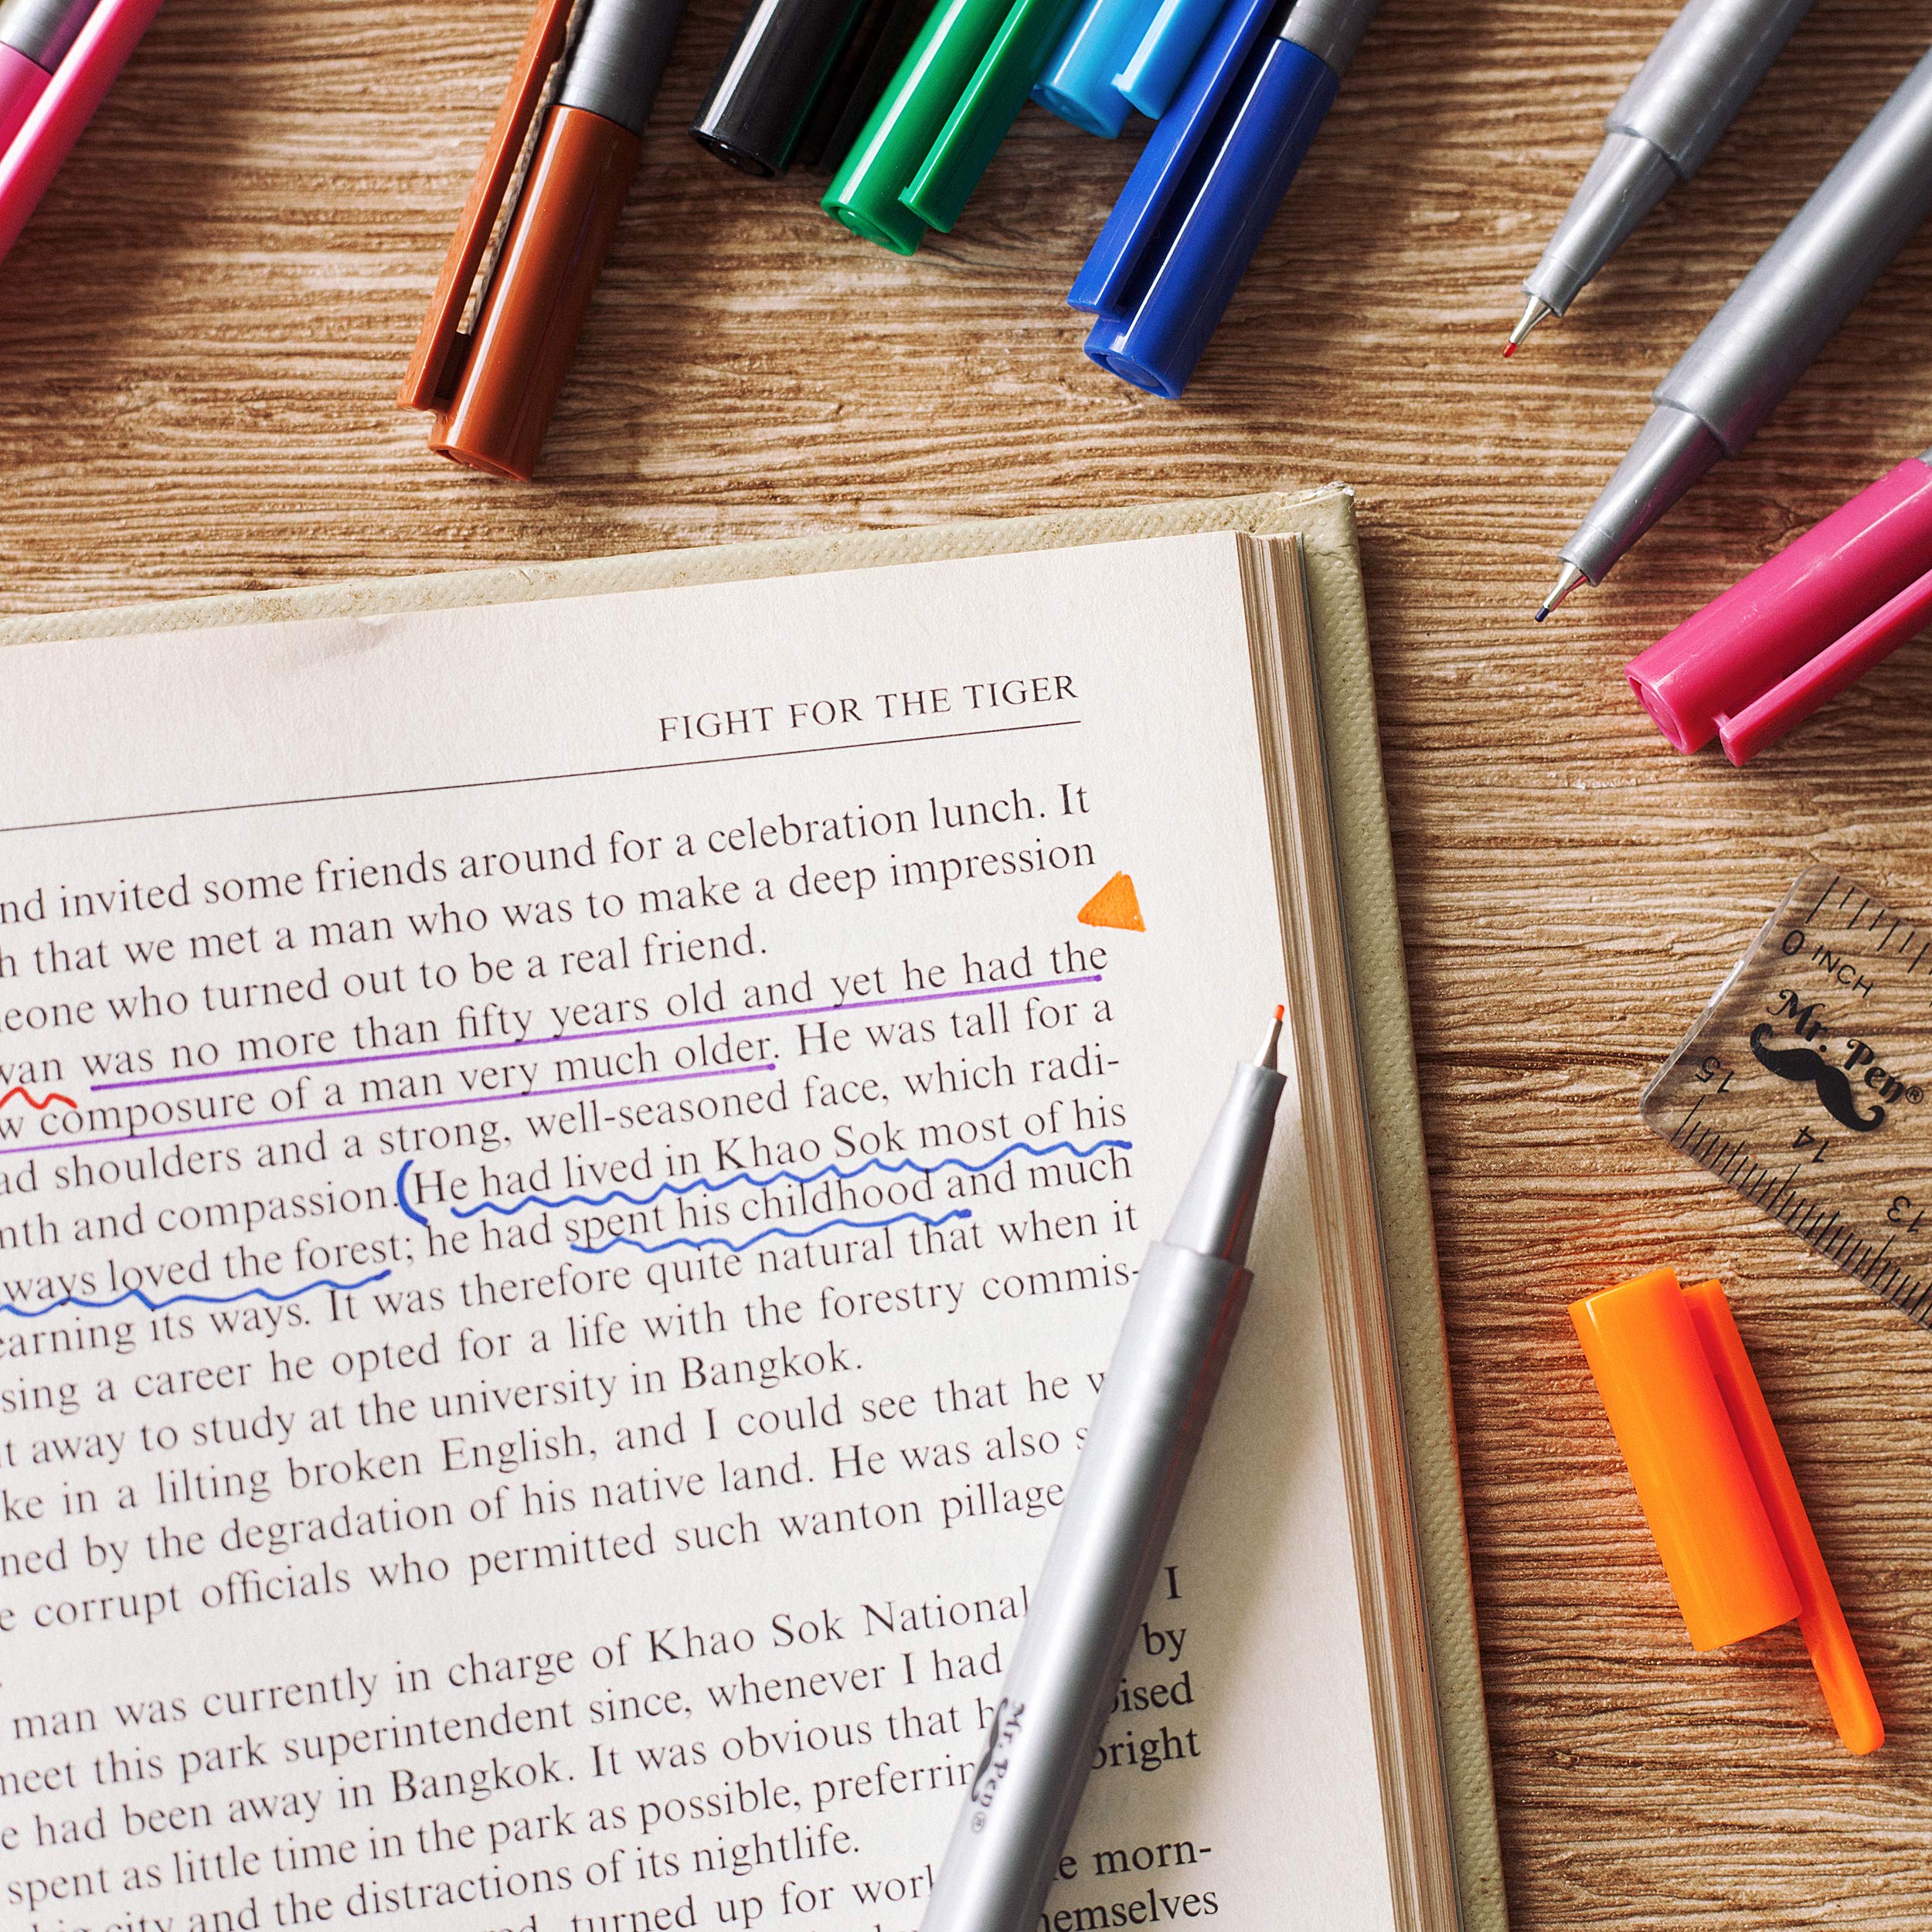 FIGHT FOR THE TIGER
invited some friends around for a celebration lunch. It
that we met a man who was to make a deep impression
who turned out to be a real friend.
was no more than fifty years old and yet he had the
composure of a man very much older. He was tall for a
shoulders and a strong, well-seasoned face, which radi-
and compassion. (He had lived in Khao Sok most of his
loved the forest; he had spent his childhood and much
its ways. It was therefore quite natural that when it
a career he opted for a life with the forestry commis-
away to study at the university in Bangkok.
in a lilting broken English, and I could see that he
by the degradation of his native land. He was also
corrupt officials who permitted such wanton pillage
man was currently in charge of Khao Sok National I
meet this park superintendent since, whenever I had by
had been away in Bangkok. It was obvious that
spent as little time in the park as possible, preferring bright
city and the distractions of its nightlife.
turned up for morn-
0 INCH
Mr. Pen®
15
14
13
Mr. Pen®